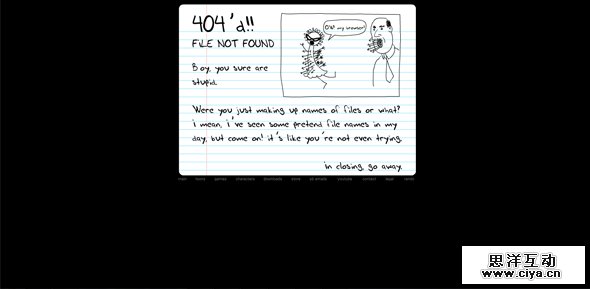 404'd!!
FiLE NOT FOUND
Boy, you sure are
stupid.
OW! my browser!
Were you just making up names of files or what?
i mean, i've seen some pretend file names in my
day, but come on! it's like you're not even trying.
in closing, go away.
思洋互动
www.ciya.cn